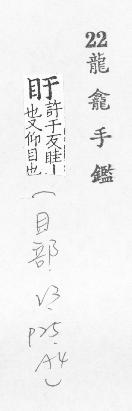 22 龍龕手鑑
盱 許于反睢丨
也又仰目也
（目部.V3.P25.A4）